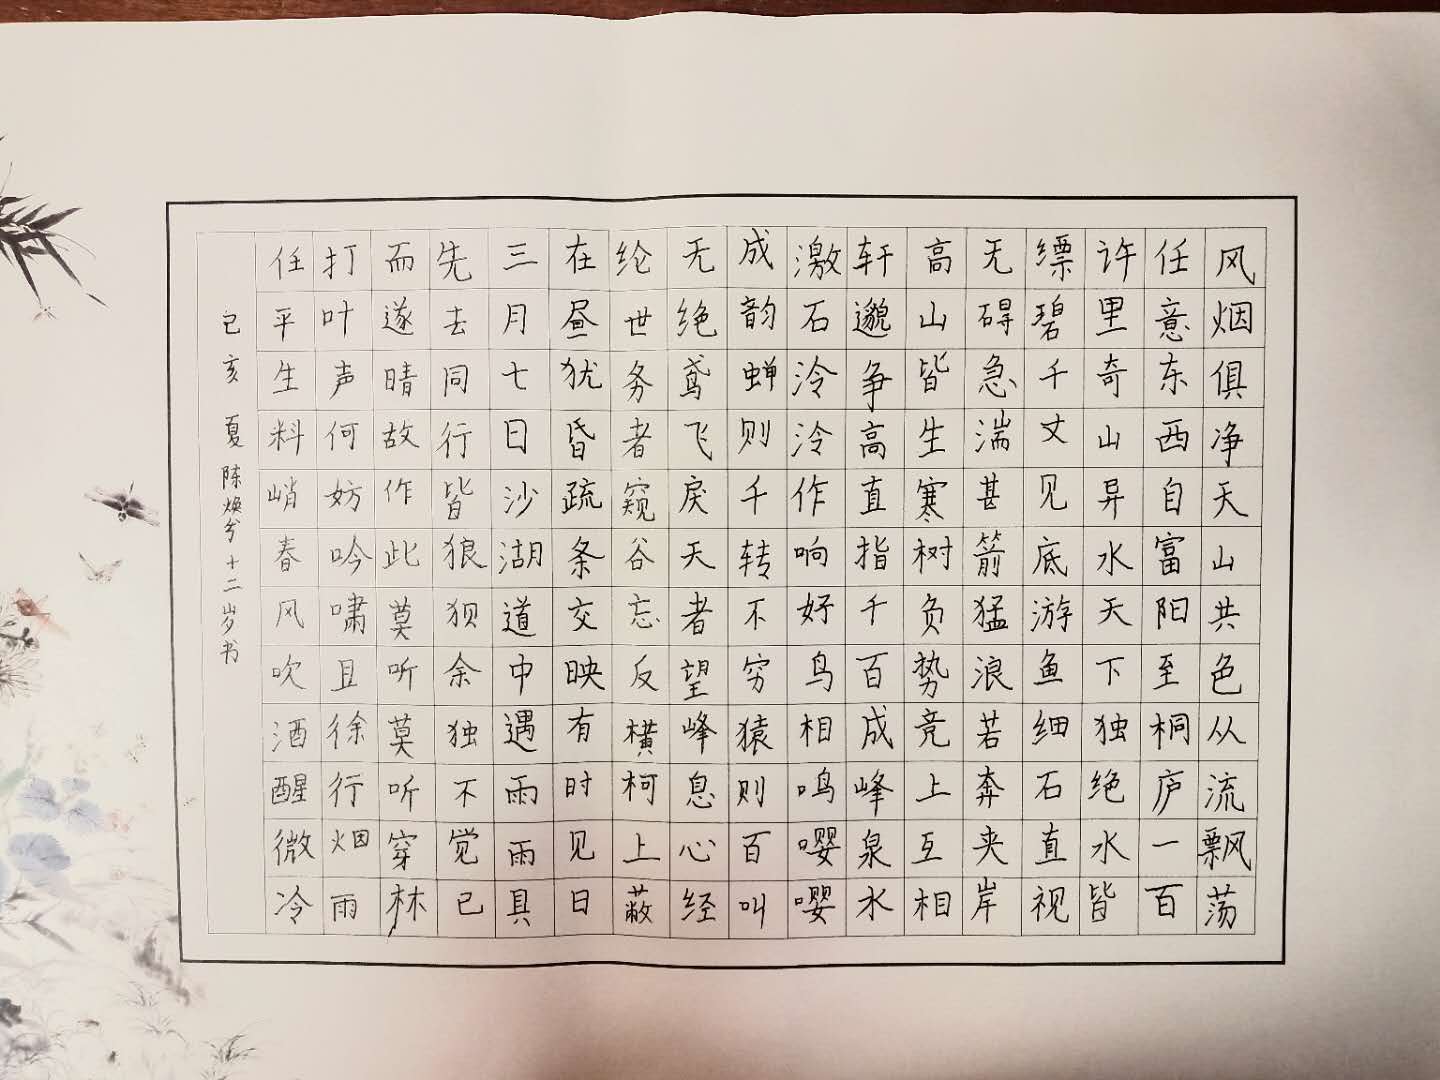 风烟俱净天山共色从流飘荡
任意东西自富阳至桐庐一百
许里奇山异水天下独绝水皆
缥碧千丈见底游鱼细石直视
无碍急湍甚箭猛浪若奔夹岸
高山皆生寒树负势竞上互相
轩邈争高直指千百成峰泉水
激石泠泠作响好鸟相鸣嘤嘤
成韵蝉则千转不穷猿则百叫
无绝鸢飞戾天者望峰息心经
纶世务者窥谷忘反横柯上蔽
在昼犹昏疏条交映有时见日
三月七日沙湖道中遇雨雨具
先去同行皆狼狈余独不觉已
而遂晴故作此莫听莫听穿林
打叶声何妨吟啸且徐行烟雨
任平生料峭春风吹酒醒微冷
己亥夏陈焕兮十二岁书